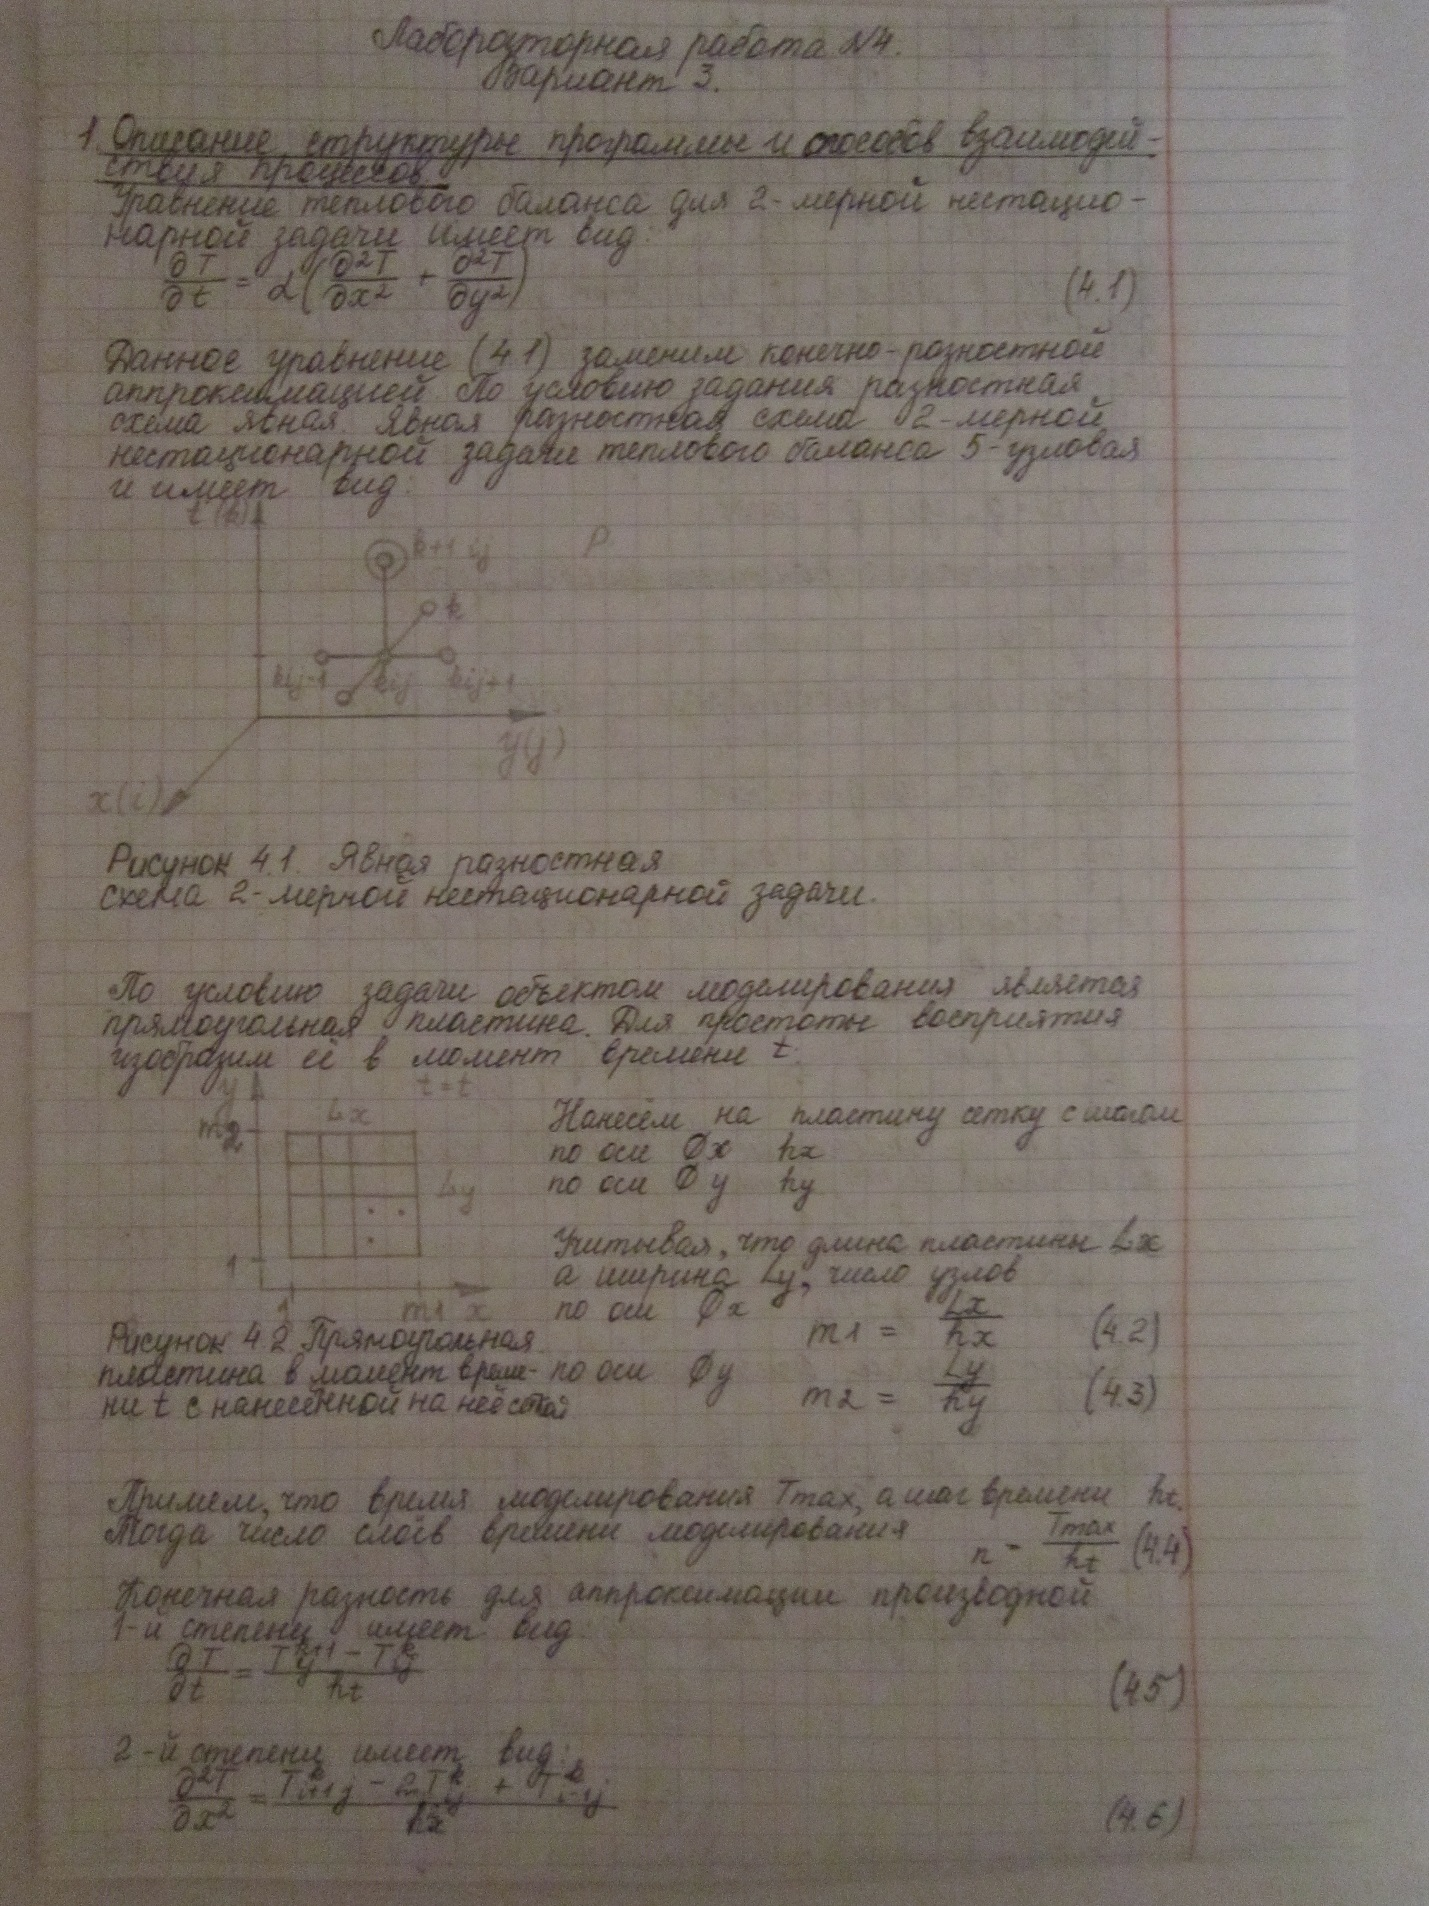 Лабораторная работа №4.
Вариант 3.
1. Описание структуры программы и способов взаимодей-
ствия процессов.
Уравнение теплового баланса для 2-мерной нестацио-
нарной задачи имеет вид:
∂T/∂t = α(∂²T/∂x² + ∂²T/∂y²) (4.1)
Данное уравнение (4.1) заменим конечно-разностной
аппроксимацией. По условию задания разностная
схема явная. Явная разностная схема 2-мерной
нестационарной задачи теплового баланса 5-узловая
и имеет вид:
t(k)
k+1 ij
P
k
kij-1 kij kij+1
y(j)
x(i)
Рисунок 4.1. Явная разностная
схема 2-мерной нестационарной задачи.
По условию задачи объектом моделирования является
прямоугольная пластина. Для простоты восприятия
изобразим её в момент времени t.
y t=t
Lx
m2
Ly
1
1 m1 x
Нанесём на пластину сетку с шагом
по оси Ox hx
по оси Oy hy
Учитывая, что длина пластины Lx
а ширина Ly, число узлов
по оси Ox m1 = Lx/hx (4.2)
по оси Oy m2 = Ly/hy (4.3)
Рисунок 4.2 Прямоугольная
пластина в момент време-
ни t с нанесённой на неё сеткой
Примем, что время моделирования Tmax, а шаг времени ht.
Тогда число слоёв времени моделирования n = Tmax/ht (4.4)
Конечная разность для аппроксимации производной
1-й степени имеет вид:
∂T/∂t = (Tij^k+1 - Tij^k)/ht (4.5)
2-й степени имеет вид:
∂²T/∂x² = (Ti+1j^k - 2Tij^k + Ti-1j^k)/hx² (4.6)